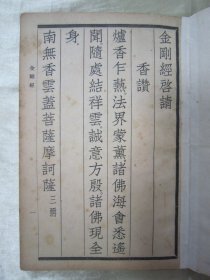 金剛經啓請
香讚
爐香乍爇法界蒙薰諸佛海會悉遙
聞隨處結祥雲誠意方殷諸佛現全
身
南無香雲蓋菩薩摩訶薩三稱
金剛經
一